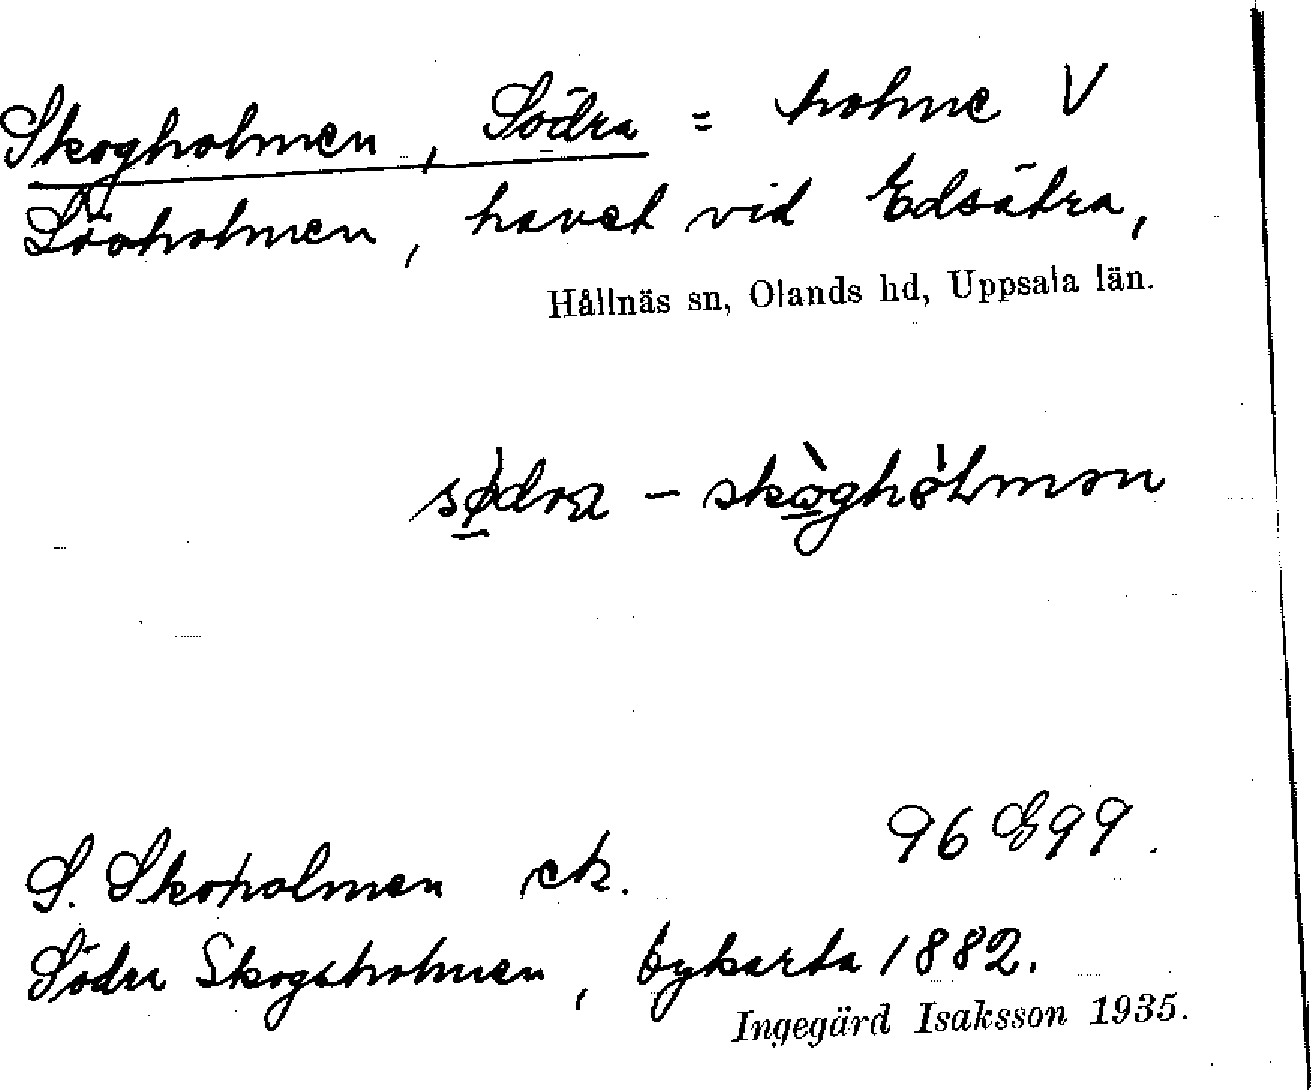 Skogholmen, Södra = holme V
Lövholmen, havet vid Edsätra,
Hållnäs sn, Olands hd, Uppsala län.
sø̲dra - skò̲ghólmɔn
96 E 99.
S. Skoholmen ek.
Södra Skogsholmen, bykarta 1882.
Ingegärd Isaksson 1935.